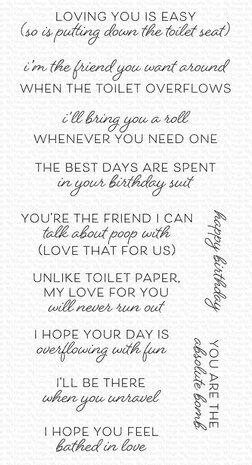 LOVING YOU IS EASY
(so is putting down the toilet seat)
i'm the friend you want around
WHEN THE TOILET OVERFLOWS
i'll bring you a roll
WHENEVER YOU NEED ONE
THE BEST DAYS ARE SPENT
in your birthday suit
YOU'RE THE FRIEND I CAN
talk about poop with
(LOVE THAT FOR US)
happy birthday
UNLIKE TOILET PAPER,
MY LOVE FOR YOU
will never run out
I HOPE YOUR DAY IS
overflowing with fun
YOU ARE THE
absolute bomb
I'LL BE THERE
when you unravel
I HOPE YOU FEEL
bathed in love